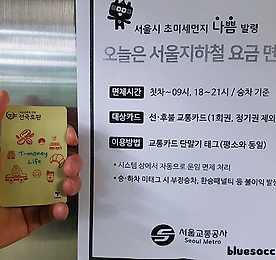 서울시 초미세먼지 나쁨 발령
오늘은 서울지하철 요금 면
면제시간 첫차~09시, 18~21시 / 승차 기준
대상카드 선·후불 교통카드(1회권, 정기권 제외
이용방법 교통카드 단말기 태그(평소와 동일)
• 시스템 상에서 자동으로 운임 면제 처리
• 승·하차 미태그 시 부정승차, 환승패널티 등 불이익 발생
서울교통공사
Seoul Metro
전국호환
T-money
Life
bluesocc